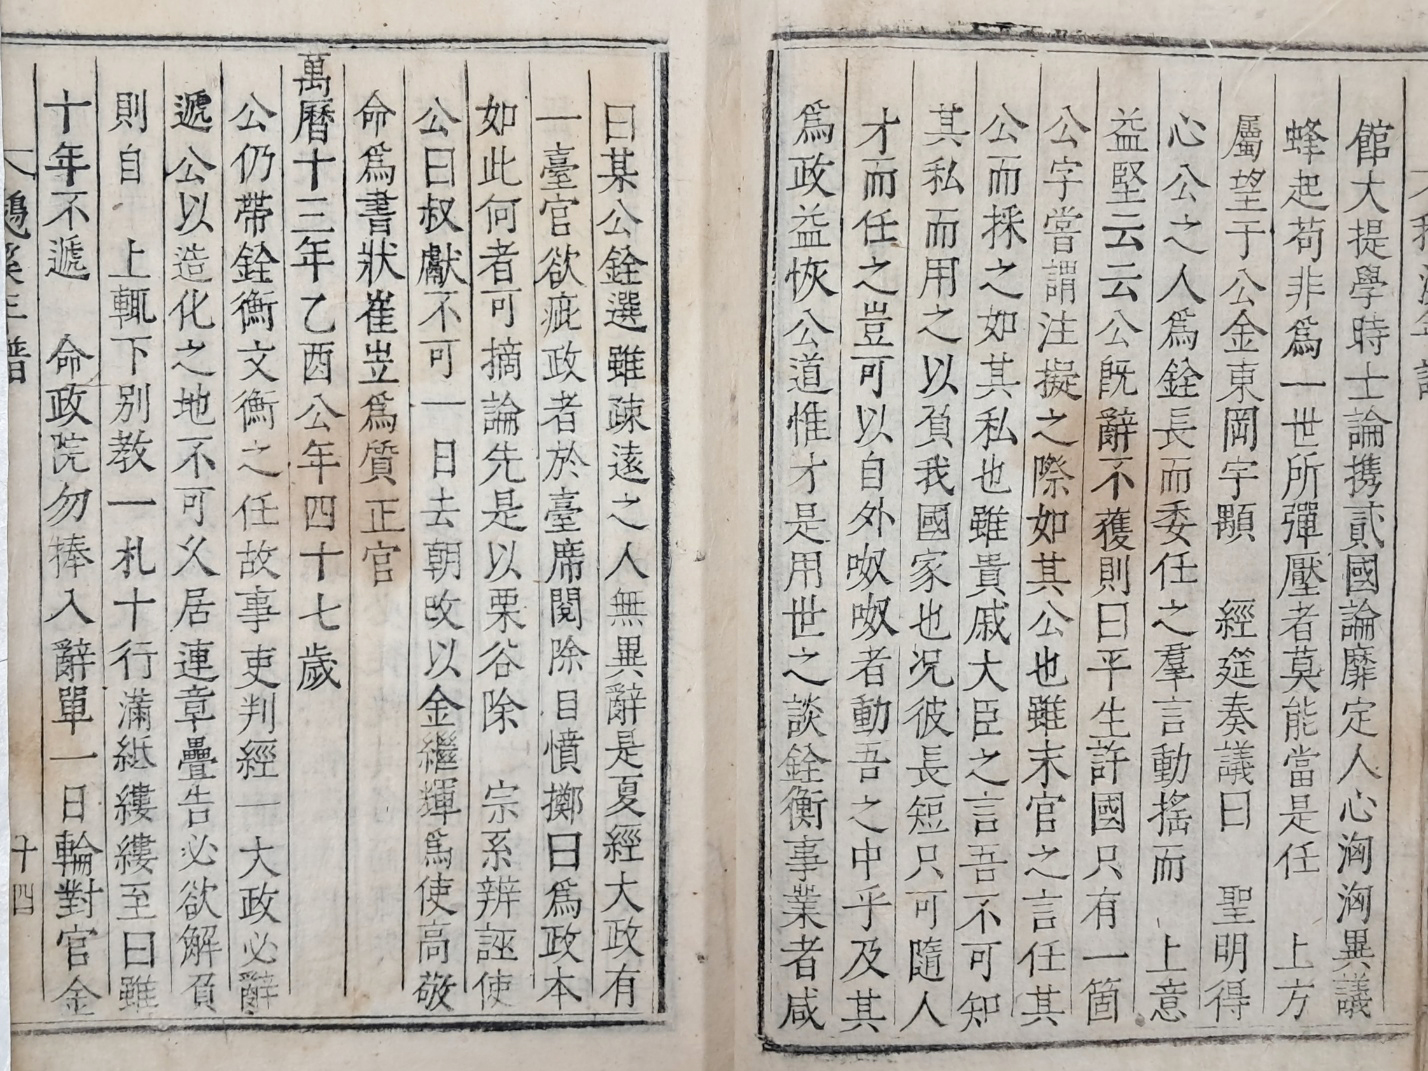 館大提學時士論携貳國論靡定人心洶洶異議
蜂起苟非爲一世所彈壓者莫能當是任 上方
屬望于公金東岡字顒 經筵奏議曰 聖明得
心公之人爲銓長而委任之羣言動搖而 上意
益堅云云公旣辭不獲則曰平生許國只有一箇
公字嘗謂注擬之際如其公也雖末官之言任其
公而採之如其私也雖貴戚大臣之言吾不可知
其私而用之以負我國家也况彼長短只可隨人
才而任之豈可以自外呶呶者動吾之中乎及其
爲政益恢公道惟才是用世之談銓衡事業者咸
曰某公銓選雖疎遠之人無異辭是夏經大政有
一臺官欲疵政者於臺席閱除目憤擲曰爲政本
如此何者可摘論先是以栗谷除 宗系辨誣使
公曰叔獻不可一日去朝改以金繼輝爲使高敬
命爲書狀崔岦爲質正官
萬曆十三年乙酉公年四十七歲
公仍帶銓衡文衡之任故事吏判經一大政必辭
遞公以造化之地不可久居連章疊告必欲解負
則自 上輒下別教一札十行滿紙縷縷至曰雖
十年不遞 命政院勿捧入辭單一日輪對官金
十四